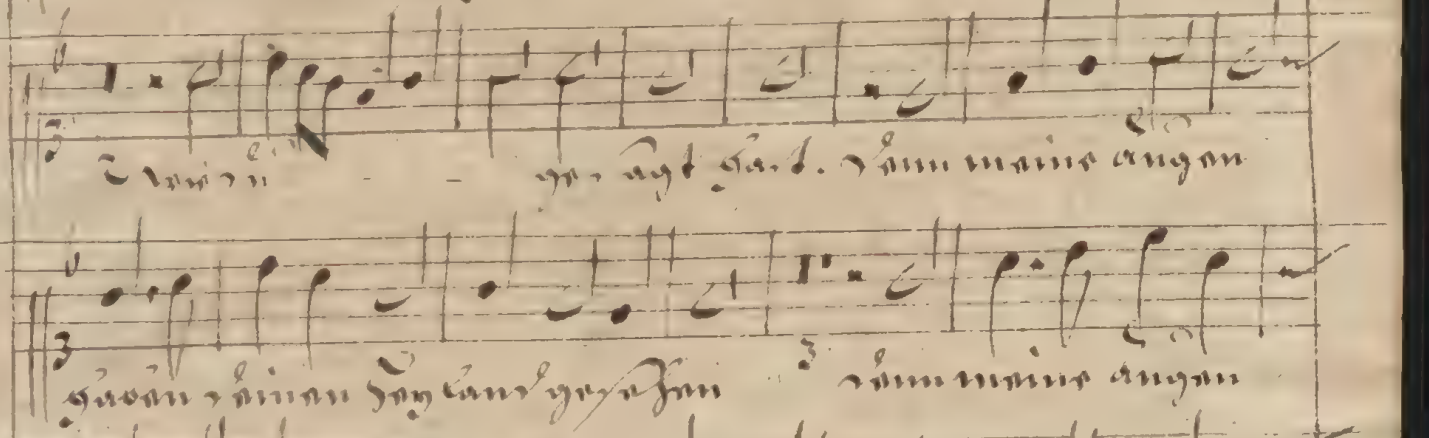 wie du - - gesagt hast. denn meine augen
haben deinen Heyland gesehen denn meine augen